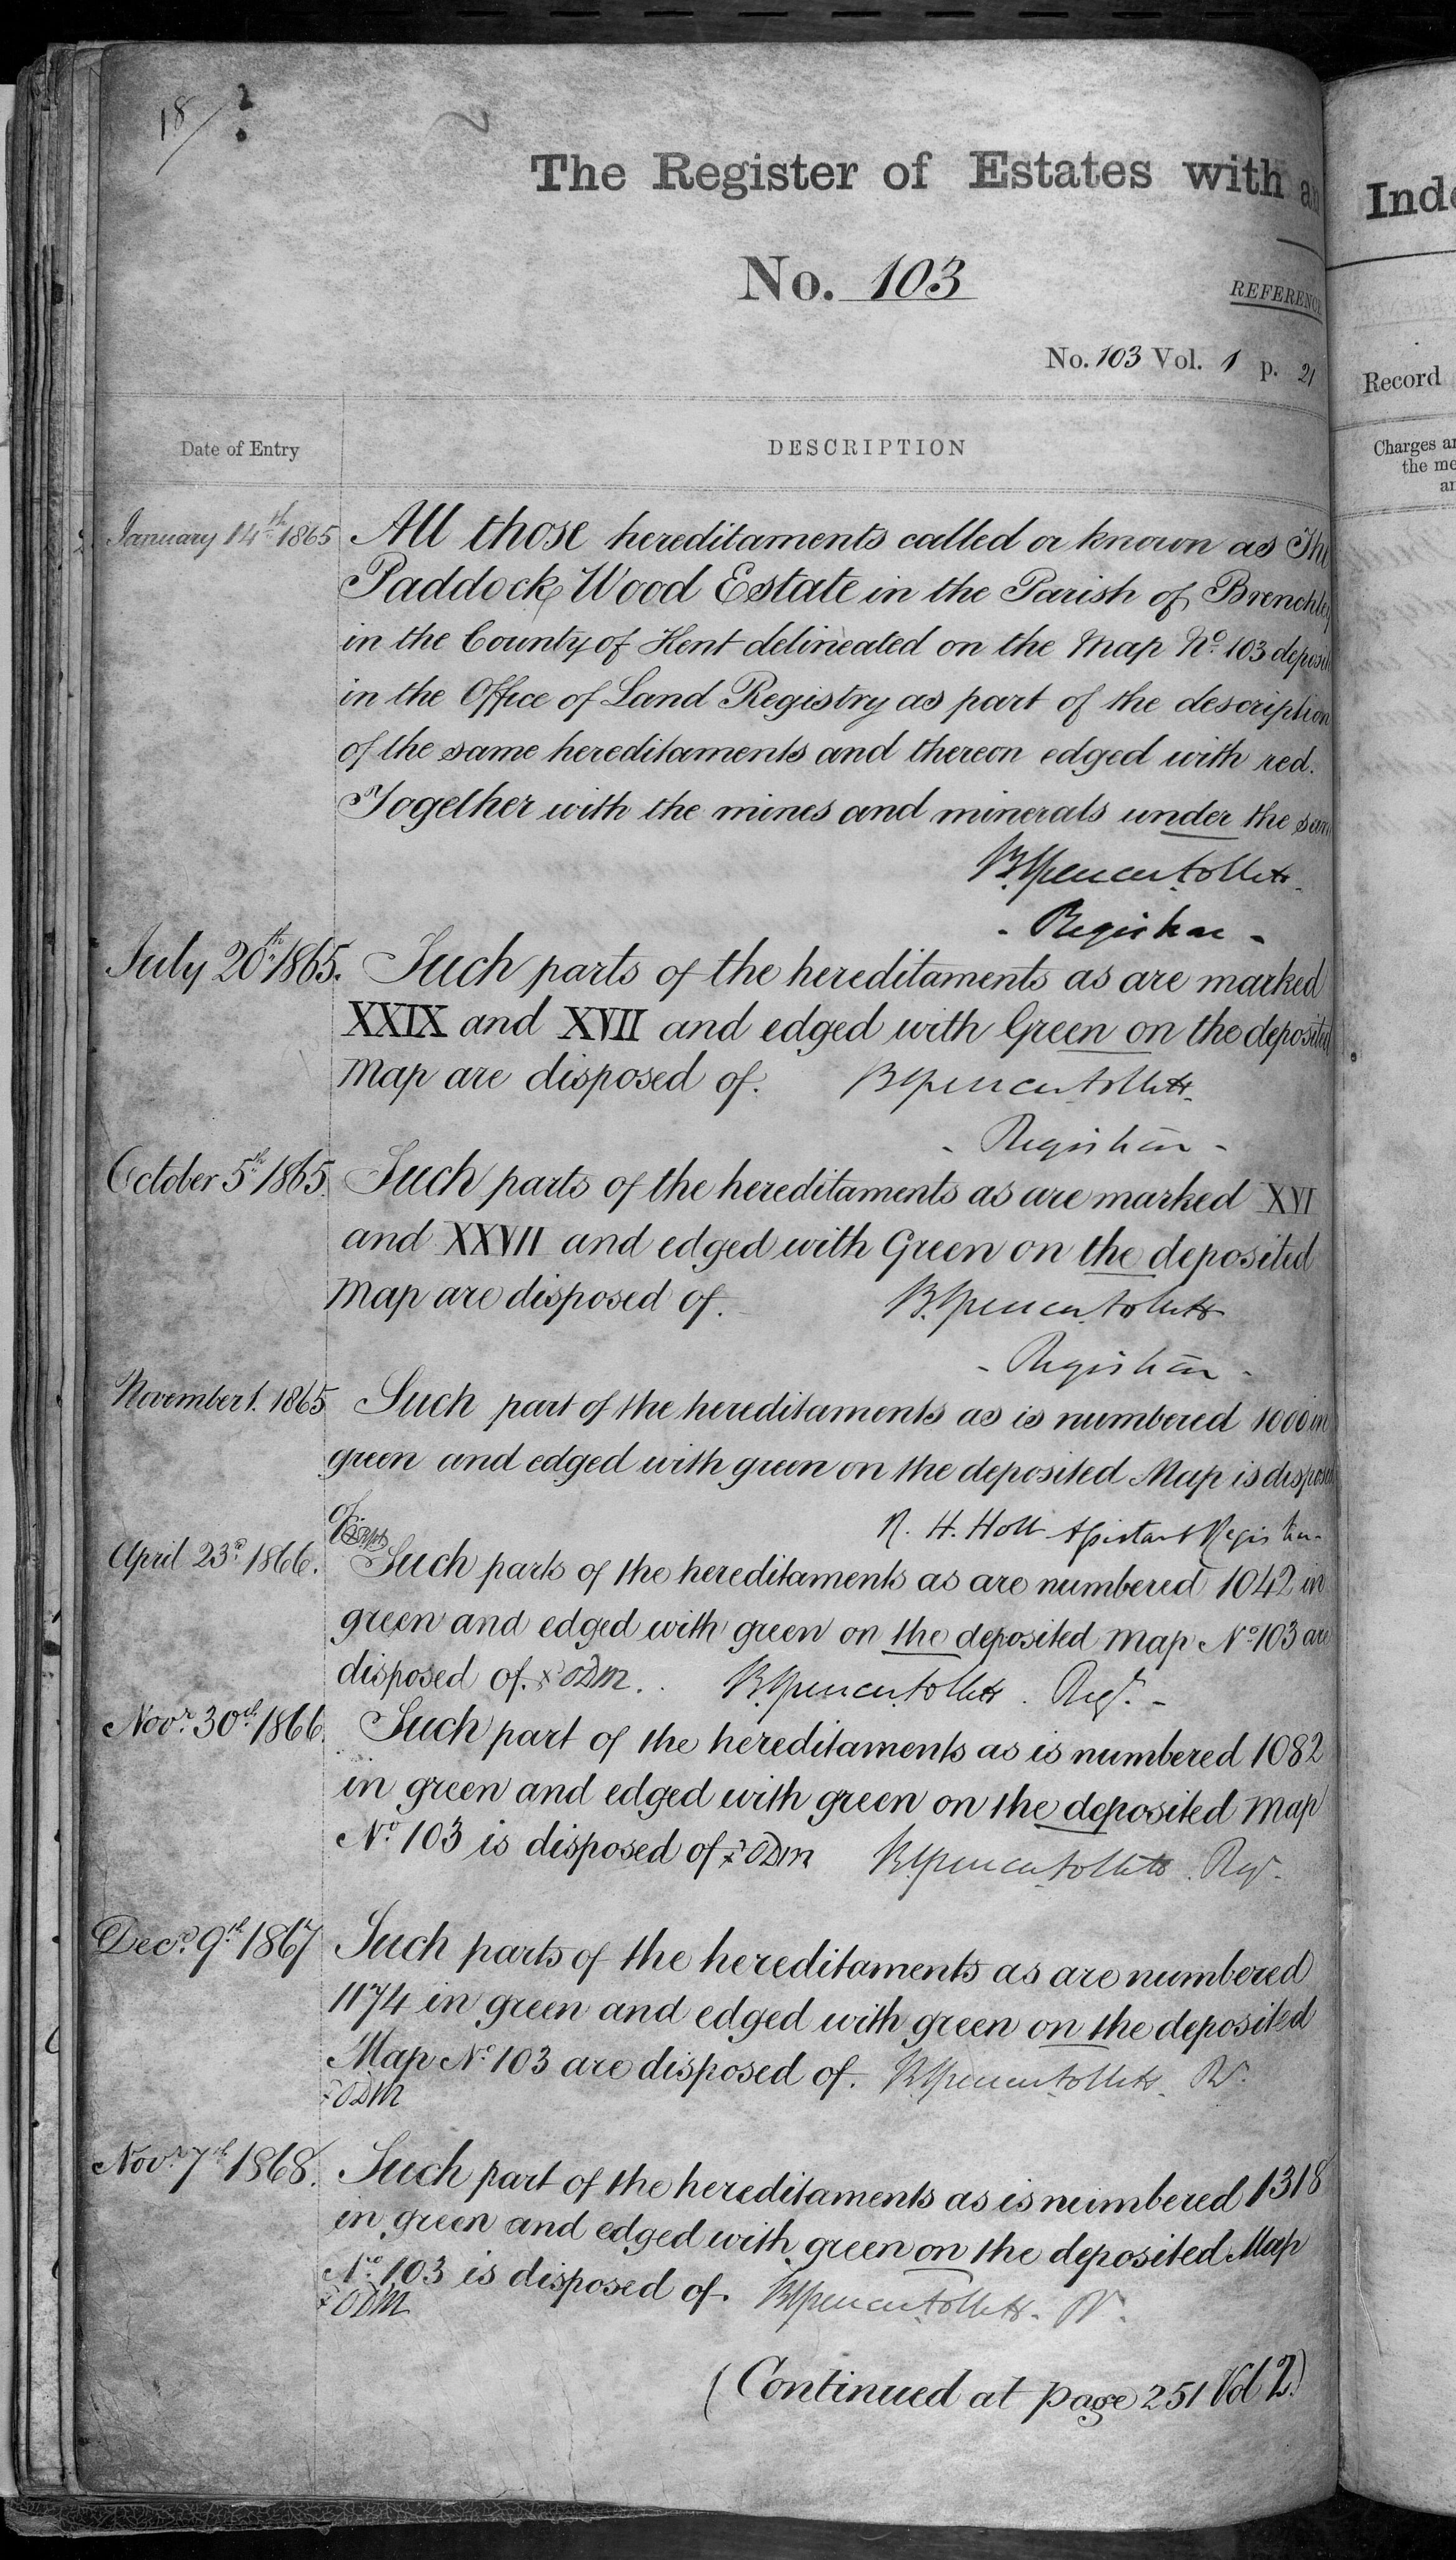 18
2
The Register of Estates with an
No. 103
REFERENCE
No. 103 Vol. 1 p. 21
Date of Entry
DESCRIPTION
January 14th 1865 All those hereditaments called or known as The
Paddock Wood Estate in the Parish of Brenchley
in the County of Kent delineated on the Map No. 103 deposit
in the Office of Land Registry as part of the description
of the same hereditaments and thereon edged with red.
Together with the mines and minerals under the sam
Registrar
July 20th 1865. Such parts of the hereditaments as are marked
XXIX and XVII and edged with Green on the deposited
Map are disposed of.
Registrar
October 5th 1865. Such parts of the hereditaments as are marked XVI
and XXVII and edged with Green on the deposited
Map are disposed of.
Registrar
November 1. 1865 Such part of the hereditaments as is numbered 1000 in
green and edged with green on the deposited Map is dispose
of.
R. H. Holt Assistant Registrar
April 23rd 1866. Such parts of the hereditaments as are numbered 1042 in
green and edged with green on the deposited map No 103 are
disposed of. Regr.
Novr. 30th 1866. Such part of the hereditaments as is numbered 1082
in green and edged with green on the deposited Map
No. 103 is disposed of Regr.
Decr. 9th 1867 Such parts of the hereditaments as are numbered
1174 in green and edged with green on the deposited
Map No. 103 are disposed of.
Novr. 7th 1868. Such part of the hereditaments as is numbered 1318
in green and edged with green on the deposited Map
No. 103 is disposed of.
(Continued at page 251 Vol 2.)
Inde
Record
Charges an
the me
an